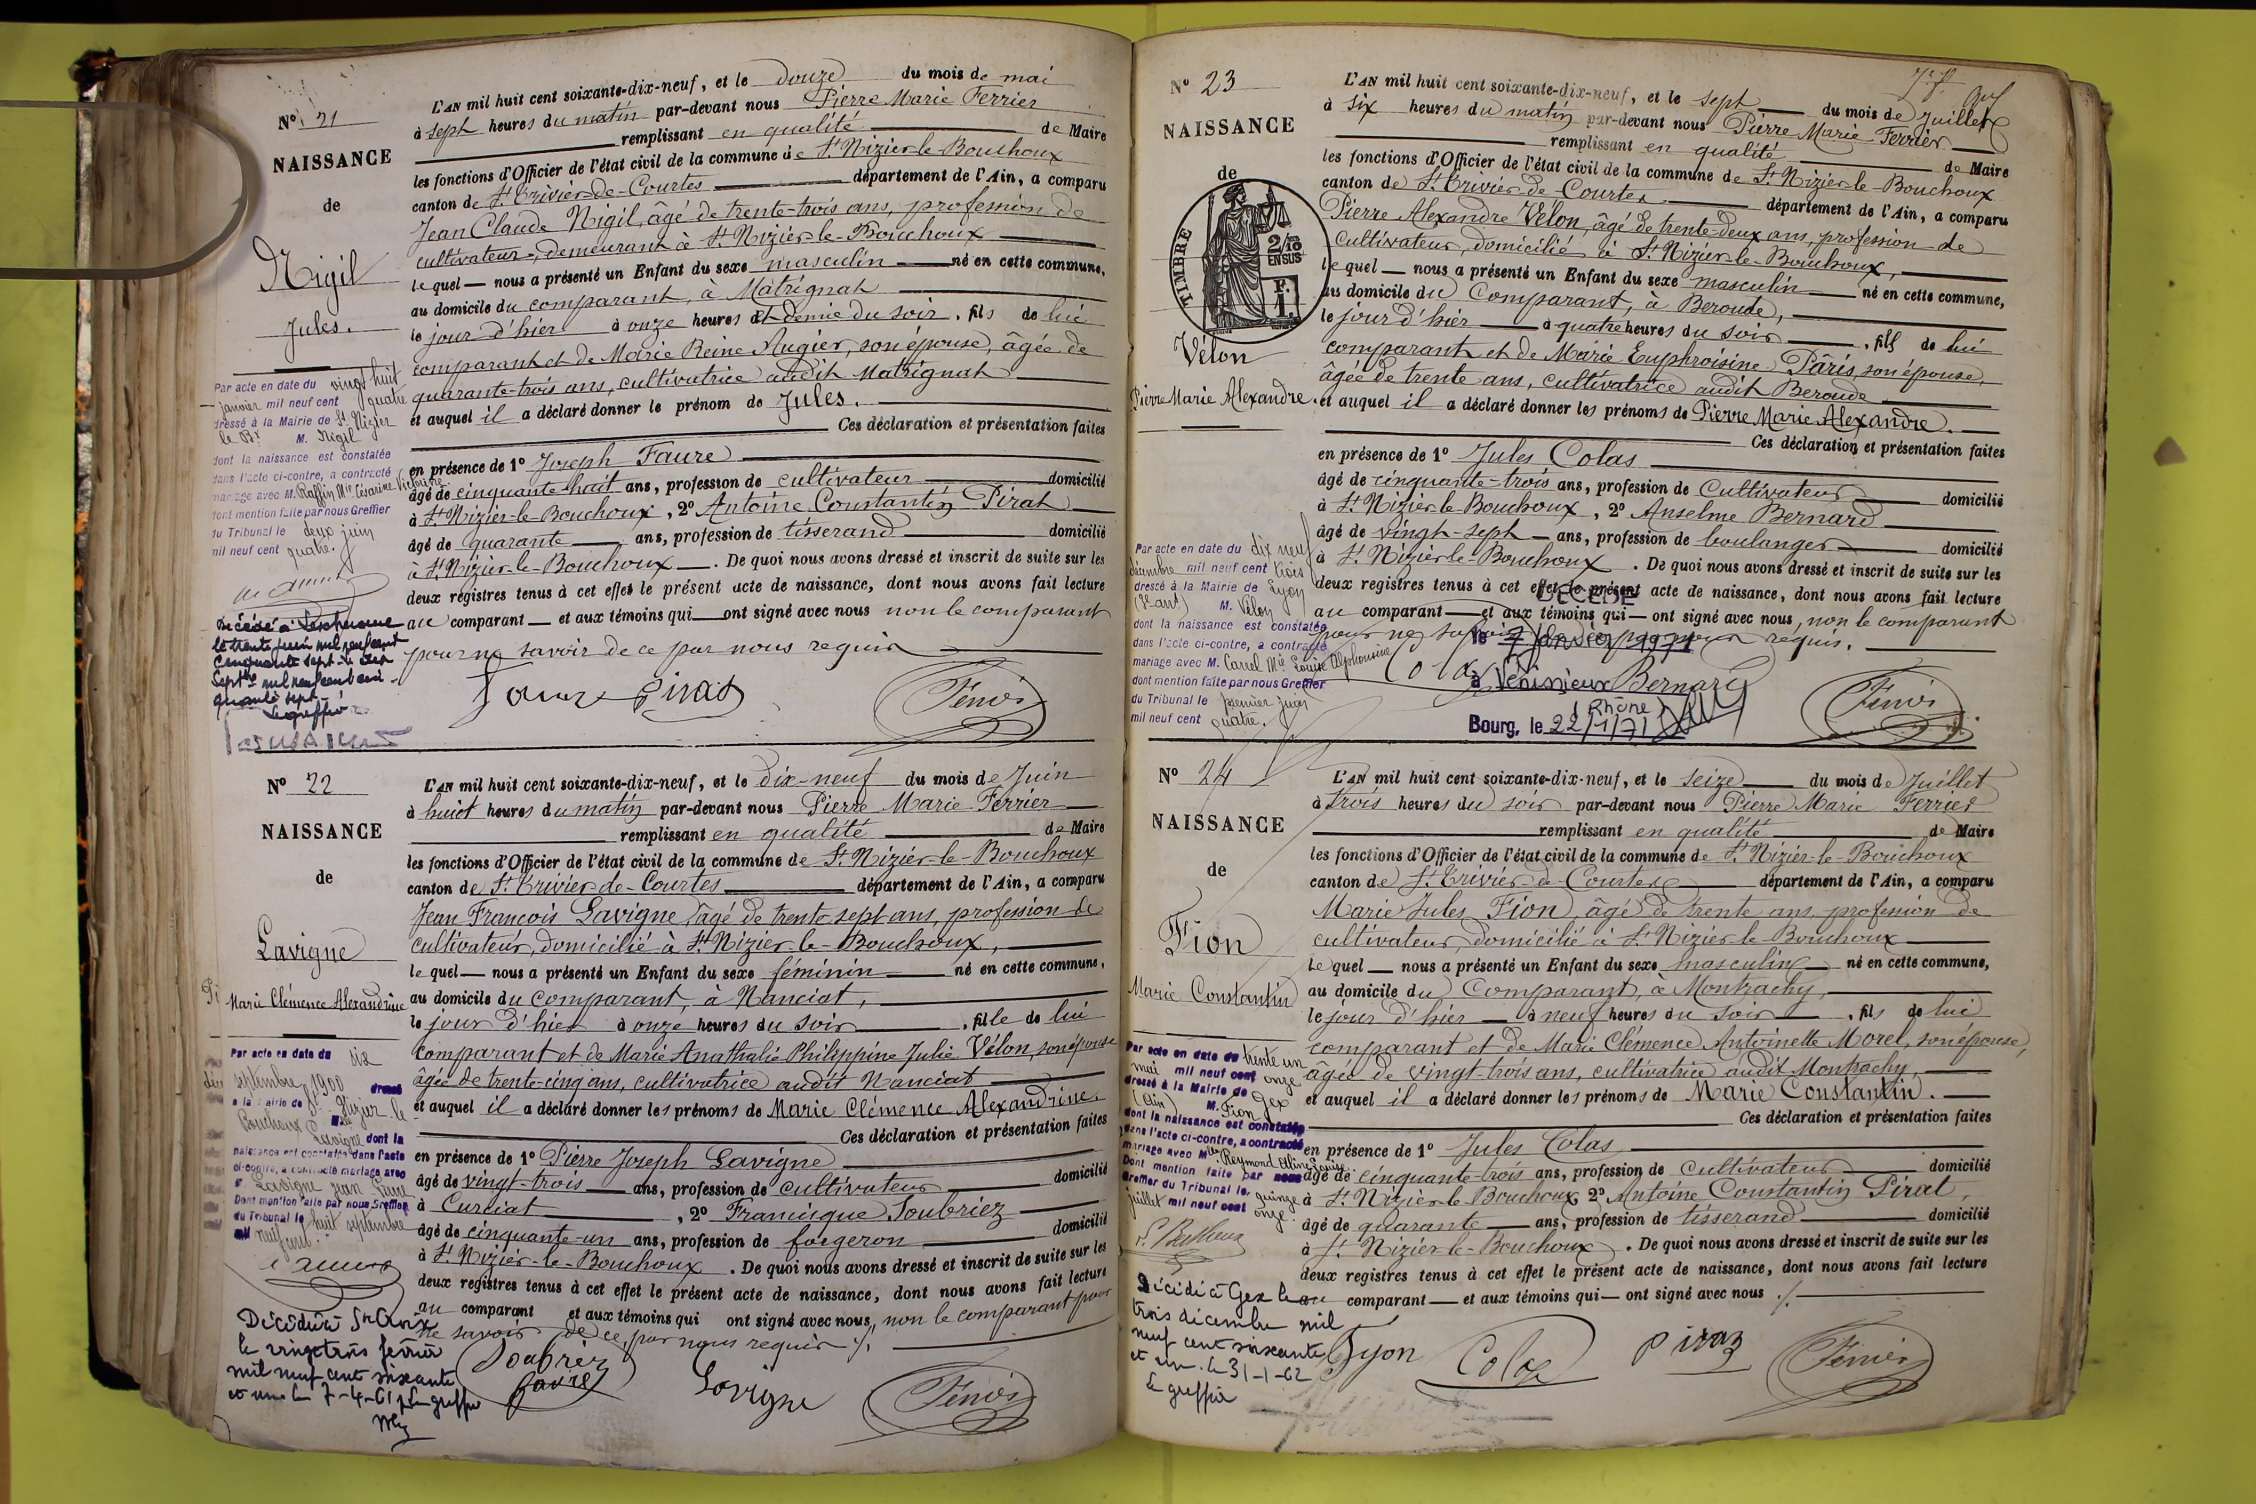 N° 21
NAISSANCE
de
Nigil
Jules.
L'AN mil huit cent soixante-dix-neuf, et le douze du mois de mai
à sept heures du matin par-devant nous Pierre Marie Ferrier
remplissant en qualité de Maire
les fonctions d'Officier de l'état civil de la commune de St Nizier-le-Bouchoux
canton de St Trivier-de-Courtes département de l'Ain, a comparu
Jean Claude Nigil, âgé de trente-trois ans, profession de
cultivateur, demeurant à St Nizier-le-Bouchoux
le quel nous a présenté un Enfant du sexe masculin né en cette commune,
au domicile du comparant, à Matrignat
le jour d'hier à onze heures et demie du soir, fils de lui
comparant et de Marie Reine Augier, son épouse, âgée de
quarante-trois ans, cultivatrice audit Matrignat
et auquel il a déclaré donner le prénom de Jules.
Ces déclaration et présentation faites
en présence de 1° Joseph Faure
âgé de cinquante-huit ans, profession de cultivateur domicilié
à St Nizier-le-Bouchoux, 2° Antoine Constantin Pirat
âgé de quarante ans, profession de tisserand domicilié
à St Nizier-le-Bouchoux. De quoi nous avons dressé et inscrit de suite sur les
deux registres tenus à cet effet le présent acte de naissance, dont nous avons fait lecture
au comparant et aux témoins qui ont signé avec nous non le comparant
pour ne savoir de ce par nous requis
Faure Pirat Ferrier
Par acte en date du vingt huit
janvier mil neuf cent quatre
dressé à la Mairie de St Nizier
le Bx M. Nigil
dont la naissance est constatée
dans l'acte ci-contre, a contracté
mariage avec M. Raffin Mie Césarine Victorine
dont mention faite par nous Greffier
du Tribunal le deux juin
mil neuf cent quatre.
Décédé à
le trente juin mil neuf cent
cinquante sept
Sept mil neuf cent cin
quante sept
Le greffier
N° 22
NAISSANCE
de
Lavigne
Marie Clémence Alexandrine
L'AN mil huit cent soixante-dix-neuf, et le dix-neuf du mois de Juin
à huit heures du matin par-devant nous Pierre Marie Ferrier
remplissant en qualité de Maire
les fonctions d'Officier de l'état civil de la commune de St Nizier-le-Bouchoux
canton de St Trivier-de-Courtes département de l'Ain, a comparu
Jean François Lavigne, âgé de trente-sept ans, profession de
cultivateur, domicilié à St Nizier-le-Bouchoux,
le quel nous a présenté un Enfant du sexe féminin né en cette commune,
au domicile du comparant, à Nanciat,
le jour d'hier à onze heures du soir, fille de lui
comparant et de Marie Anathalie Philippine Julie Vélon, son épouse
âgée de trente-cinq ans, cultivatrice audit Nanciat
et auquel il a déclaré donner les prénoms de Marie Clémence Alexandrine.
Ces déclaration et présentation faites
en présence de 1° Pierre Joseph Lavigne
âgé de vingt-trois ans, profession de cultivateur domicilié
à Curciat, 2° Francisque Soubriez
âgé de cinquante-un ans, profession de forgeron domicilié
à St Nizier-le-Bouchoux. De quoi nous avons dressé et inscrit de suite sur les
deux registres tenus à cet effet le présent acte de naissance, dont nous avons fait lecture
au comparant et aux témoins qui ont signé avec nous, non le comparant pour
ne savoir de ce par nous requis ./.
Soubriez Lavigne Ferrier
Par acte en date du six
septembre 1900 dressé
à la Mairie de St Nizier le
Bouchoux Mlle
Lavigne dont la
naissance est constatée dans l'acte
ci-contre, a contracté mariage avec
Lavigne Jean
Dont mention faite par nous Greffier
du Tribunal le huit septembre
mil neuf cent.
Décédée à Ste Croix
le vingt trois février
mil neuf cent soixante
et un le 7-4-61 le greffier
N° 23
NAISSANCE
de
TIMBRE
2/10
EN SUS
F.
1.
Vélon
Pierre Marie Alexandre.
L'AN mil huit cent soixante-dix-neuf, et le sept du mois de Juillet
à six heures du matin par-devant nous Pierre Marie Ferrier
remplissant en qualité de Maire
les fonctions d'Officier de l'état civil de la commune de St Nizier-le-Bouchoux
canton de St Trivier-de-Courtes département de l'Ain, a comparu
Pierre Alexandre Vélon, âgé de trente-deux ans, profession de
cultivateur, domicilié à St Nizier-le-Bouchoux,
le quel nous a présenté un Enfant du sexe masculin né en cette commune,
au domicile du comparant, à Beroude,
le jour d'hier à quatre heures du soir, fils de lui
comparant et de Marie Euphroisine Pâris, son épouse,
âgée de trente ans, cultivatrice audit Beroude
et auquel il a déclaré donner les prénoms de Pierre Marie Alexandre.
Ces déclaration et présentation faites
en présence de 1° Jules Colas
âgé de cinquante-trois ans, profession de cultivateur domicilié
à St Nizier-le-Bouchoux, 2° Anselme Bernard
âgé de vingt-sept ans, profession de boulanger domicilié
à St Nizier-le-Bouchoux. De quoi nous avons dressé et inscrit de suite sur les
deux registres tenus à cet effet le présent acte de naissance, dont nous avons fait lecture
au comparant et aux témoins qui ont signé avec nous, non le comparant
pour ne savoir de ce par nous requis.
Colas Bernard Ferrier
DÉCÉDÉ
le 7 Janvier 1971
à Vénissieux
(Rhône)
Bourg, le 22/1/71
Par acte en date du dix neuf
décembre mil neuf cent trois
dressé à la Mairie de Lyon
(3e arrt) M. Vélon
dont la naissance est constatée
dans l'acte ci-contre, a contracté
mariage avec M. Carrel Mie Louise Alphonsine
dont mention faite par nous Greffier
du Tribunal le premier juin
mil neuf cent quatre.
N° 24
NAISSANCE
de
Fion
Marie Constantin
L'AN mil huit cent soixante-dix-neuf, et le seize du mois de Juillet
à trois heures du soir par-devant nous Pierre Marie Ferrier
remplissant en qualité de Maire
les fonctions d'Officier de l'état civil de la commune de St Nizier-le-Bouchoux
canton de St Trivier-de-Courtes département de l'Ain, a comparu
Marie Jules Fion, âgé de trente ans, profession de
cultivateur, domicilié à St Nizier-le-Bouchoux
le quel nous a présenté un Enfant du sexe masculin né en cette commune,
au domicile du comparant, à Montrachy,
le jour d'hier à neuf heures du soir, fils de lui
comparant et de Marie Clémence Antoinette Morel, son épouse,
âgée de vingt-trois ans, cultivatrice audit Montrachy,
et auquel il a déclaré donner les prénoms de Marie Constantin.
Ces déclaration et présentation faites
en présence de 1° Jules Colas
âgé de cinquante-trois ans, profession de cultivateur domicilié
à St Nizier-le-Bouchoux, 2° Antoine Constantin Pirat,
âgé de quarante ans, profession de tisserand domicilié
à St Nizier-le-Bouchoux. De quoi nous avons dressé et inscrit de suite sur les
deux registres tenus à cet effet le présent acte de naissance, dont nous avons fait lecture
au comparant et aux témoins qui ont signé avec nous ./.
Fyon Colas Piraz Ferrier
Par acte en date du trente un
mai mil neuf cent onze
dressé à la Mairie de Gex
(Ain) M. Fion
dont la naissance est constatée
dans l'acte ci-contre, a contracté
mariage avec Mlle Reymond Aline Louise
Dont mention faite par nous
Greffier du Tribunal le quinze
juillet mil neuf cent onze.
Décédé à Gex le
trois décembre mil
neuf cent soixante
et un. le 31-1-62
Le greffier